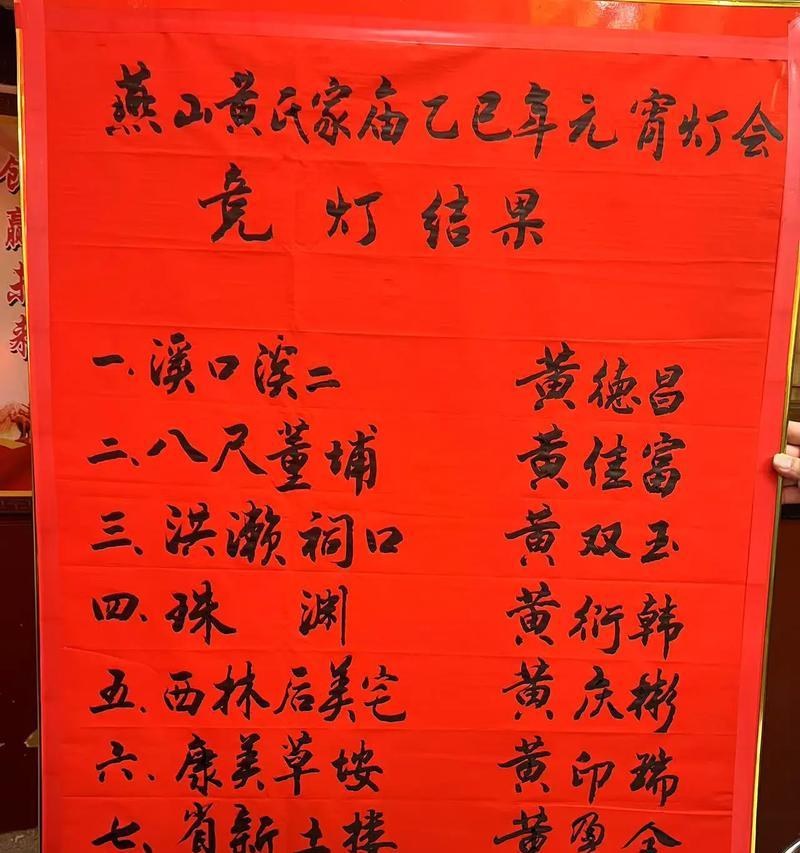 燕山黄氏家庙乙巳年元宵灯会
竞灯结果
一、溪口溪二 黄德昌
二、八尺董埔 黄佳富
三、洪濑祠口 黄双玉
四、珠渊 黄衍韩
五、西林后美宅 黄庆彬
六、康美草垵 黄印瑞
七、省新土楼 黄盈全
赢未来